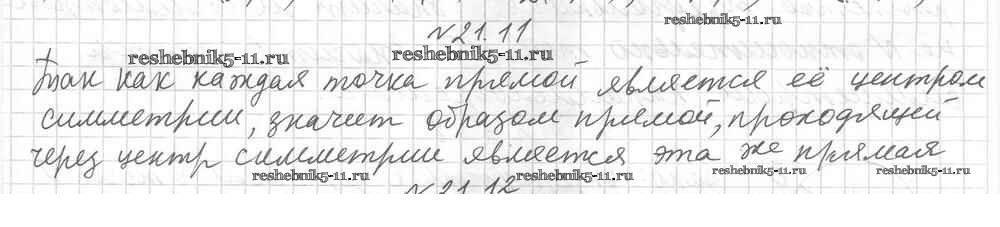 reshebnik5-11.ru
№21.11
reshebnik5-11.ru reshebnik5-11.ru
Так как каждая точка прямой является её центром
симметрии, значит образом прямой, проходящей
через центр симметрии является эта же прямая
reshebnik5-11.ru reshebnik5-11.ru reshebnik5-11.ru reshebnik5-11.ru
№21.12